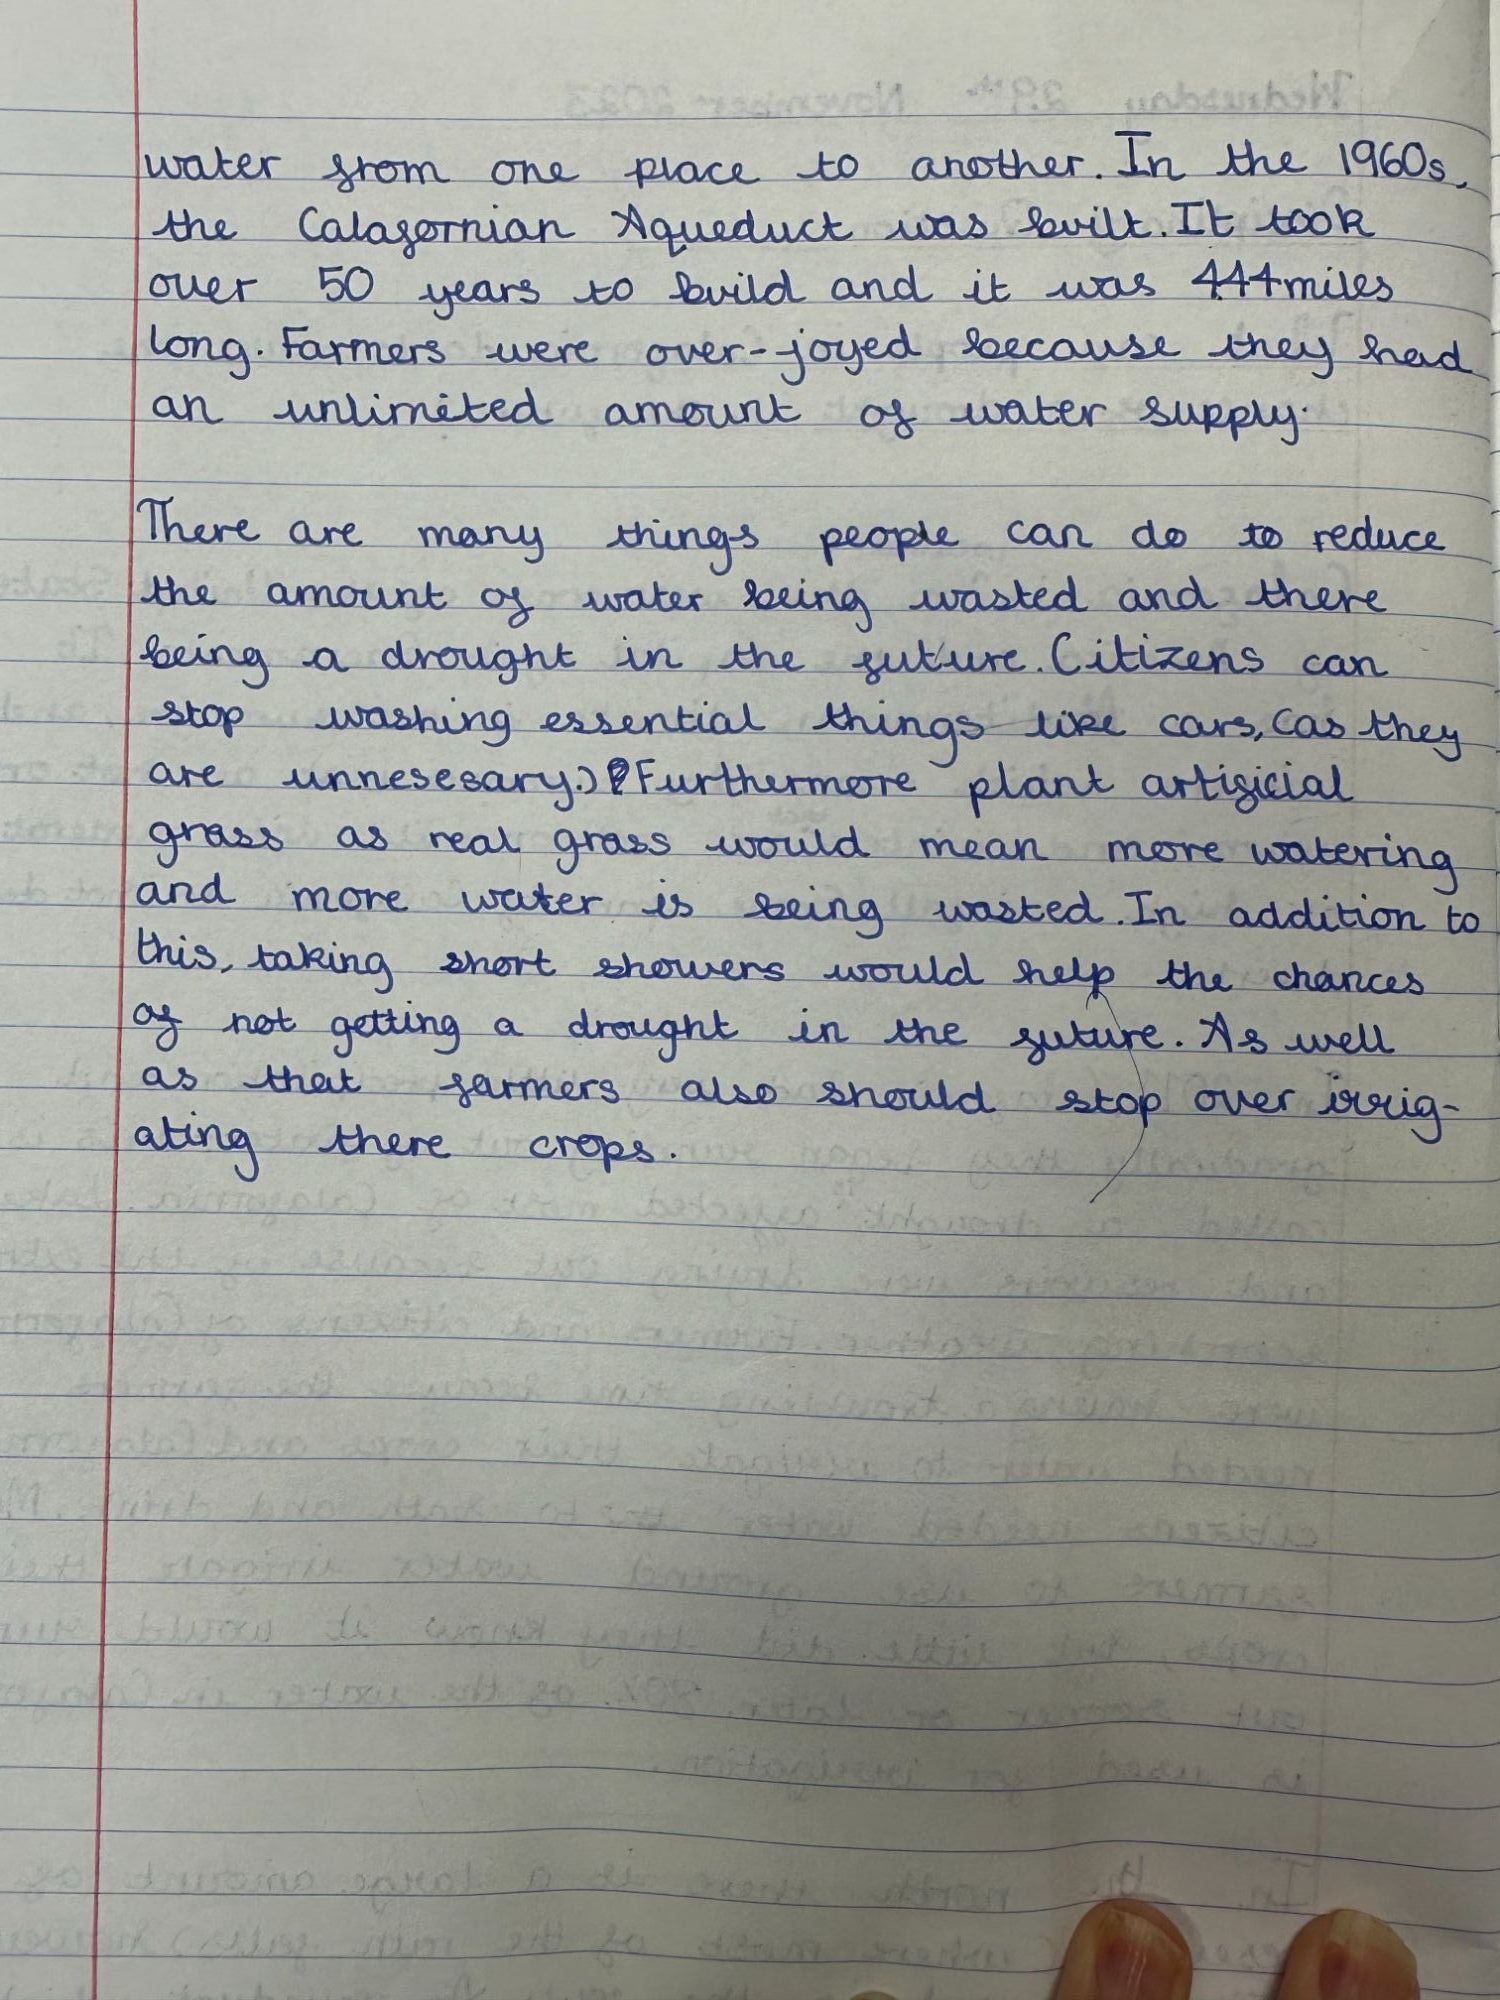 water from one place to another. In the 1960s,
the Calafornian Aqueduct was built. It took
over 50 years to build and it was 444miles
long. Farmers were over-joyed because they had
an unlimited amount of water supply.
There are many things people can do to reduce
the amount of water being wasted and there
being a drought in the future. Citizens can
stop washing essential things like cars, (as they
are unnesesary.) Furthermore plant artificial
grass as real grass would mean more watering
and more water is being wasted. In addition to
this, taking short showers would help the chances
of not getting a drought in the future. As well
as that farmers also should stop over irrig-
ating there crops.